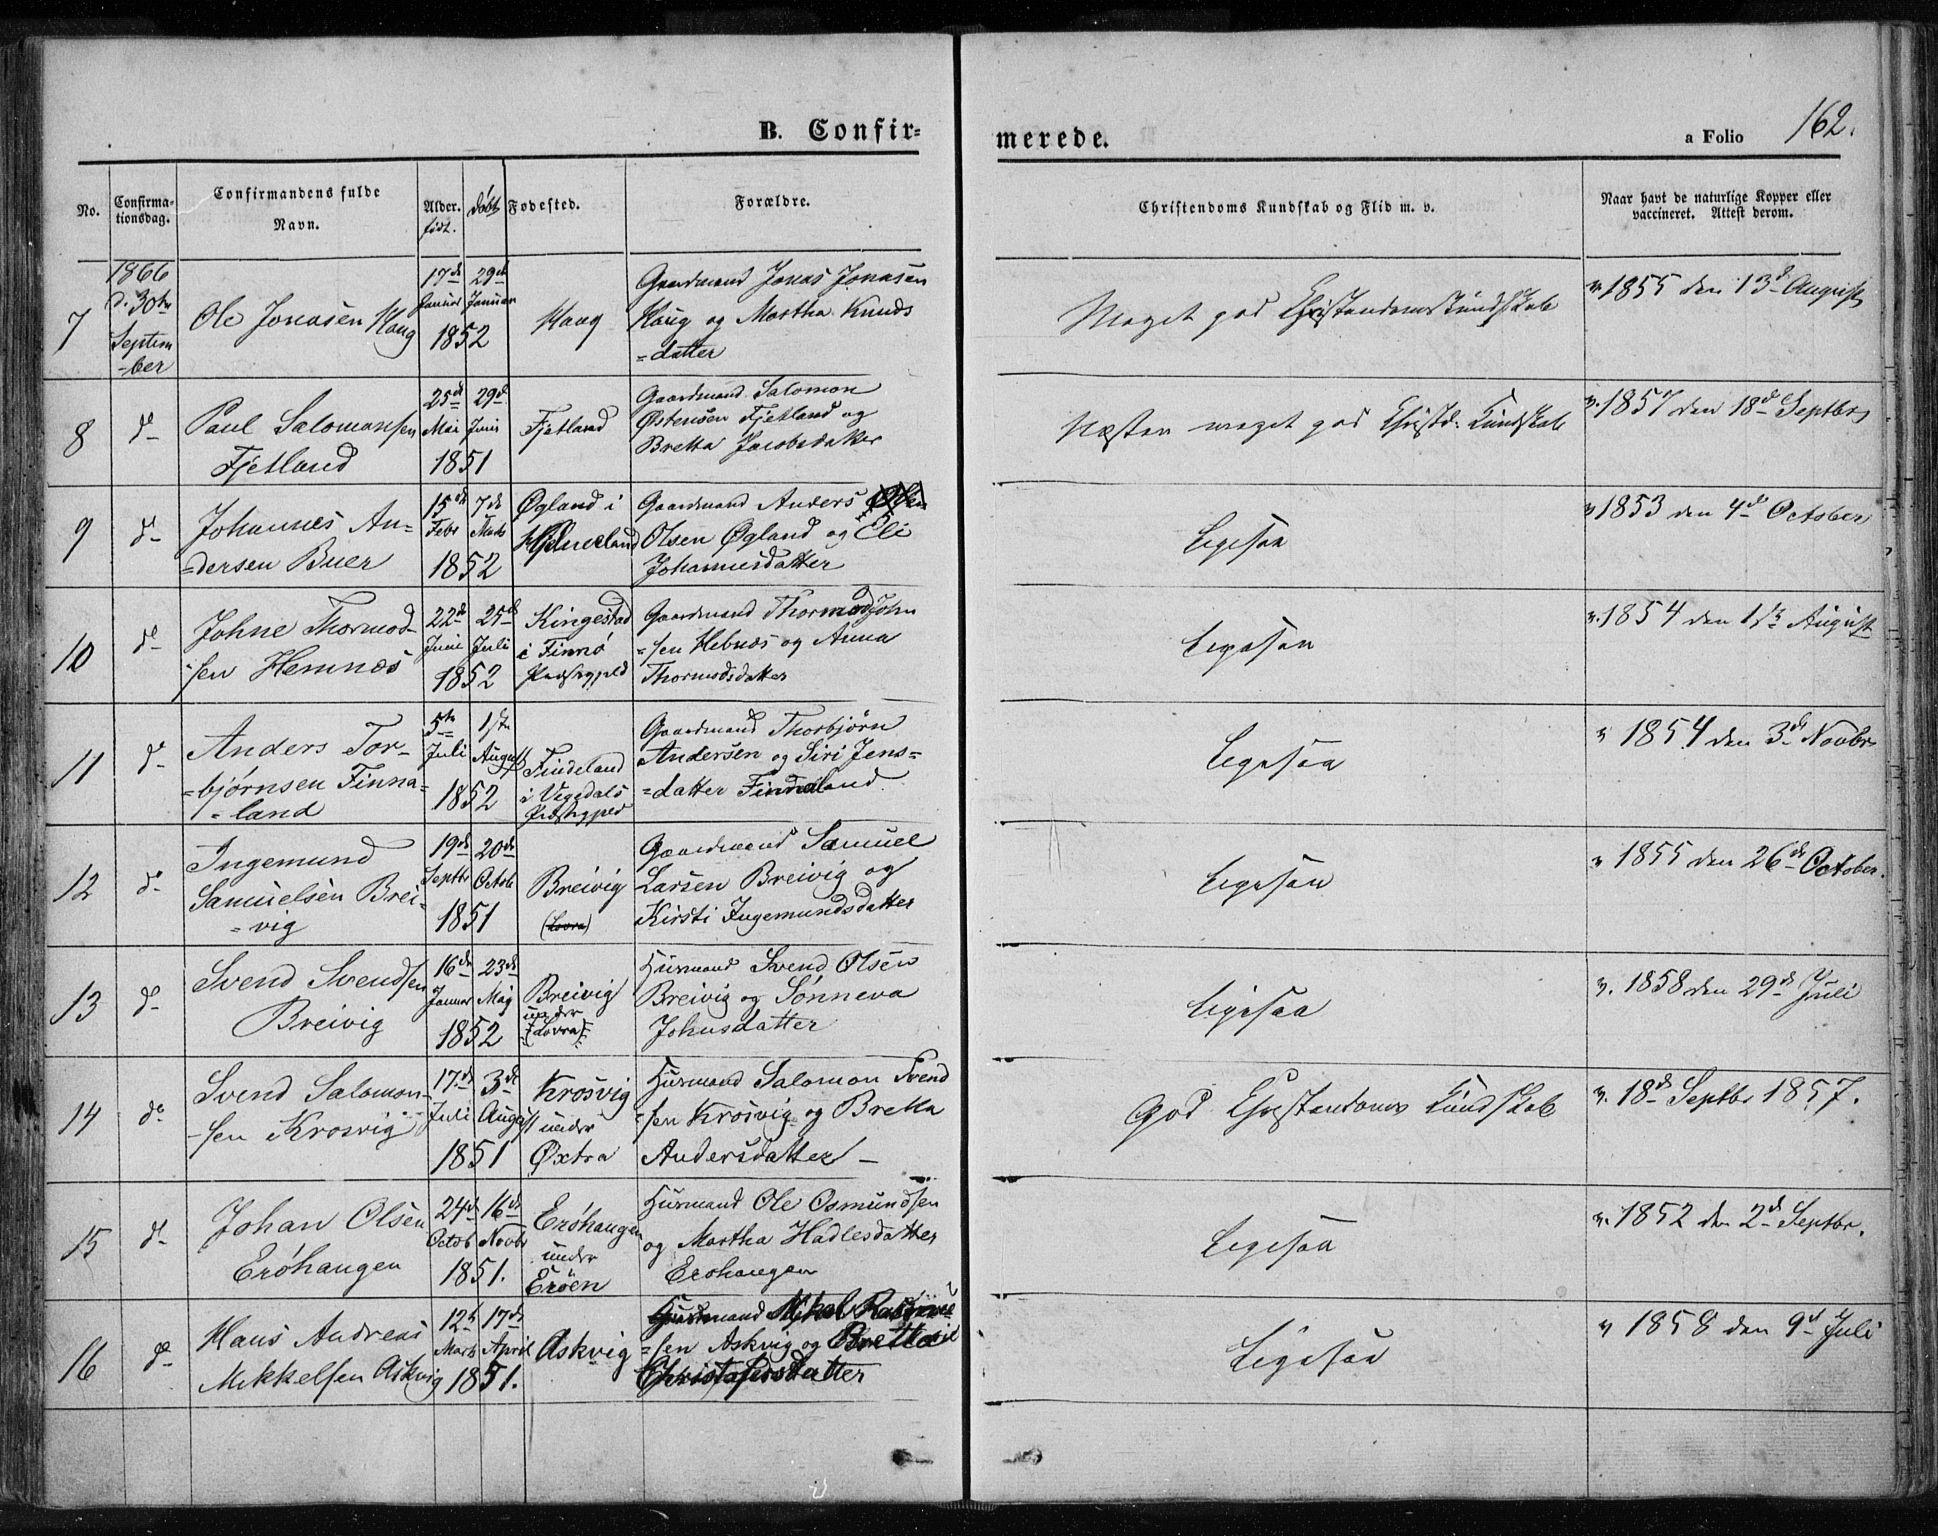 B. Confir=
merede.
a Folio 162.
No.
Confirma-
tionsdag.
Confirmandens fulde
Navn.
Alder.
født.
døbt
Fødested.
Forældre.
Christendoms Kundskab og Flid m. v.
Naar havt de naturlige Kopper eller
vaccineret. Attest derom.
7
1866
d. 30te
Septem
-ber
Ole Jonasen Haug
17de
Januar
29de
Januar
1852
Haug
Gaardmand Jonas Jonasen
Haug og Martha Knuds
=datter
Meget god Christendomskundskab
v. 1855 den 13d August
8
do
Paul Salomonsen
Fjetland
25d
Mai
29d
Juni
1851
Fjetland
Gaardmand Salomon
Østensen Fjetland og
Bretta Jacobsdatter
Næsten meget god Christd. Kundskab
v. 1857 den 18d Septbr
9
do
Johannes An-
=dersen Buer
15de
Febr
7de
Marts
1852
Øgland i
Gaardmand Anders
Olsen Øgland og Eli
Johannesdatter
Ligesaa
v 1853 den 4d October
10
do
Johne Thormod-
sen Hemnæs
22d
Juni
25d
Juli
1852
Kingestad
i Finnø
Præstegjeld
Gaardmand Thormod John
=sen Hebnæs og Anna
Thormodsdatter
Ligesaa
v. 1854 den 1ste August
11
do
Anders Tor-
=bjørnsen Finna-
-land
5te
Juli
1ste
August
1852
Findeland
i Vigedals
Præstegjeld
Gaardmand Thorbjørn
Andersen og Siri Jens=
=datter Finnaland.
Ligesaa
v 1854 den 3d Novbr
12
do
Ingemund
Samuelsen Brei-
=vig
19de
Septbr
20de
Octob
1851
Breivig
(Lovra)
Gaardmand Samuel
Larsen Breivig og
Kirsti Ingemundsdatter
Ligesaa
v 1855 den 26d October.
13
do
Svend Svendsen
Breivig
16de
Januar
23de
Maj
1852
Breivig
under
(Lovra)
Husmand Svend Olsen
Breivig og Sønneva
Johnsdatter
Ligesaa
v. 1858 den 29d Juli
14
do
Svend Salomon-
-sen Krosvig
17de
Juli
3de
August
1851
Krosvig
under
Øxtra
Husmand Salomon Svend
=sen Krosvig og Bretta
Andersdatter –
God Christendoms Kundskab
v. 18d Septbr 1857.
15
do
Johan Olsen
Erøhaugen
24d
Octob
16d
Novbr
1851.
Erøhaugen
under
Erøen
Husmand Ole Osmundsen
og Martha Hadlesdatter
Erøhaugen
Ligesaa
v. 1852 den 2d Septbr.
16
do
Hans Andreas
Mikkelsen Askvig
12te
Marts
17de
April
1851.
Askvig
Husmand Mikal Rasmus
=sen Askvig og Bretta
Christofersdatter
Ligesaa
v 1858 den 9d Juli